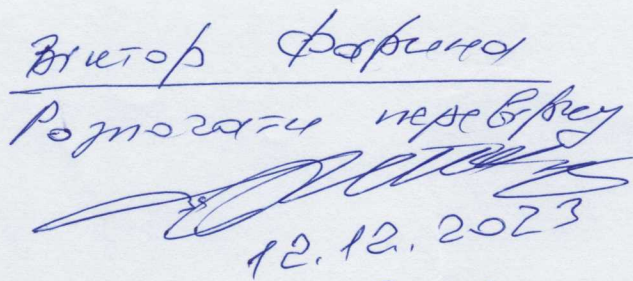 Віктор Фафина
Розпочати перевірку
12.12.2023